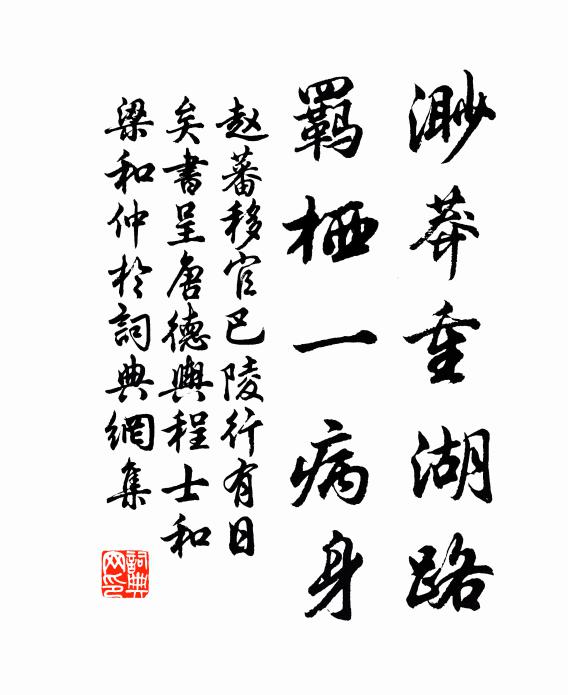 渺莽重湖路
羁栖一病身
赵蕃移官巴陵行有日
矣書呈唐德輿程士和
梁和仲於詞典網集
詞典網印